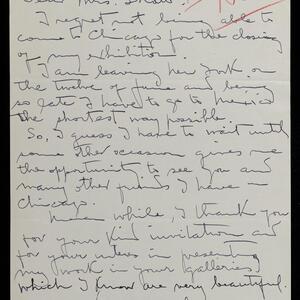 Dear Mrs. Shaw:
I regret not being able to
come to Chicago for the closing
of my exhibition.
I am leaving New York on
the twelve of June and being
so late I have to go to Mexico
the shortest way possible.
So, I guess I have to wait until
some other occasion gives me
the opportunity to see you and
many other friends I have in
Chicago.
Mean while, I thank you
for your kind invitation and
for your interes in presenting
my work in your galleries,
which I know are very beautiful.